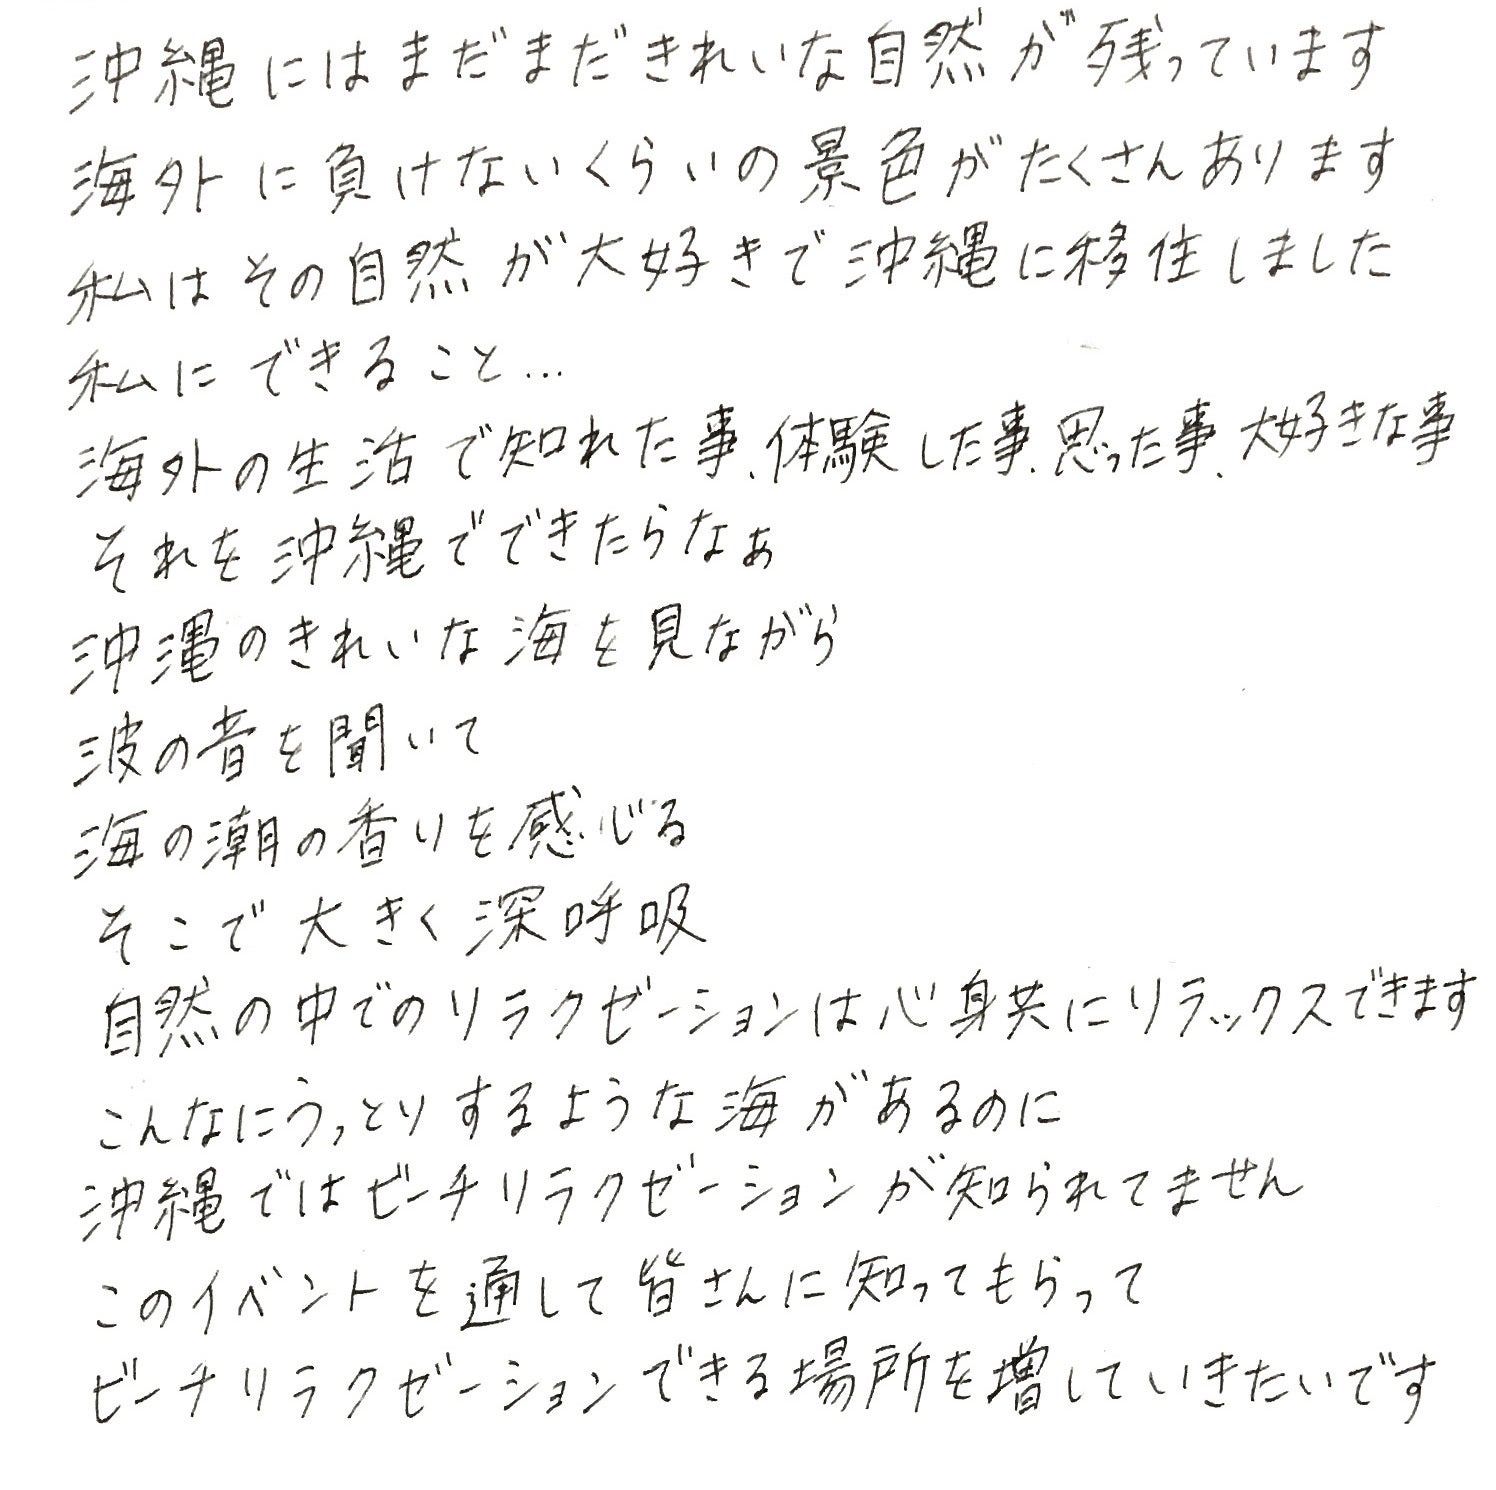 沖縄にはまだまだきれいな自然が残っています
海外に負けないくらいの景色がたくさんあります
私はその自然が大好きで沖縄に移住しました
私にできること…
海外の生活で知れた事、体験した事、思った事、大好きな事
それを沖縄でできたらなぁ
沖縄のきれいな海を見ながら
波の音を聞いて
海の潮の香りを感じる
そこで大きく深呼吸
自然の中でのリラクゼーションは心身共にリラックスできます
こんなにうっとりするような海があるのに
沖縄ではビーチリラクゼーションが知られてません
このイベントを通して皆さんに知ってもらって
ビーチリラクゼーションできる場所を増していきたいです